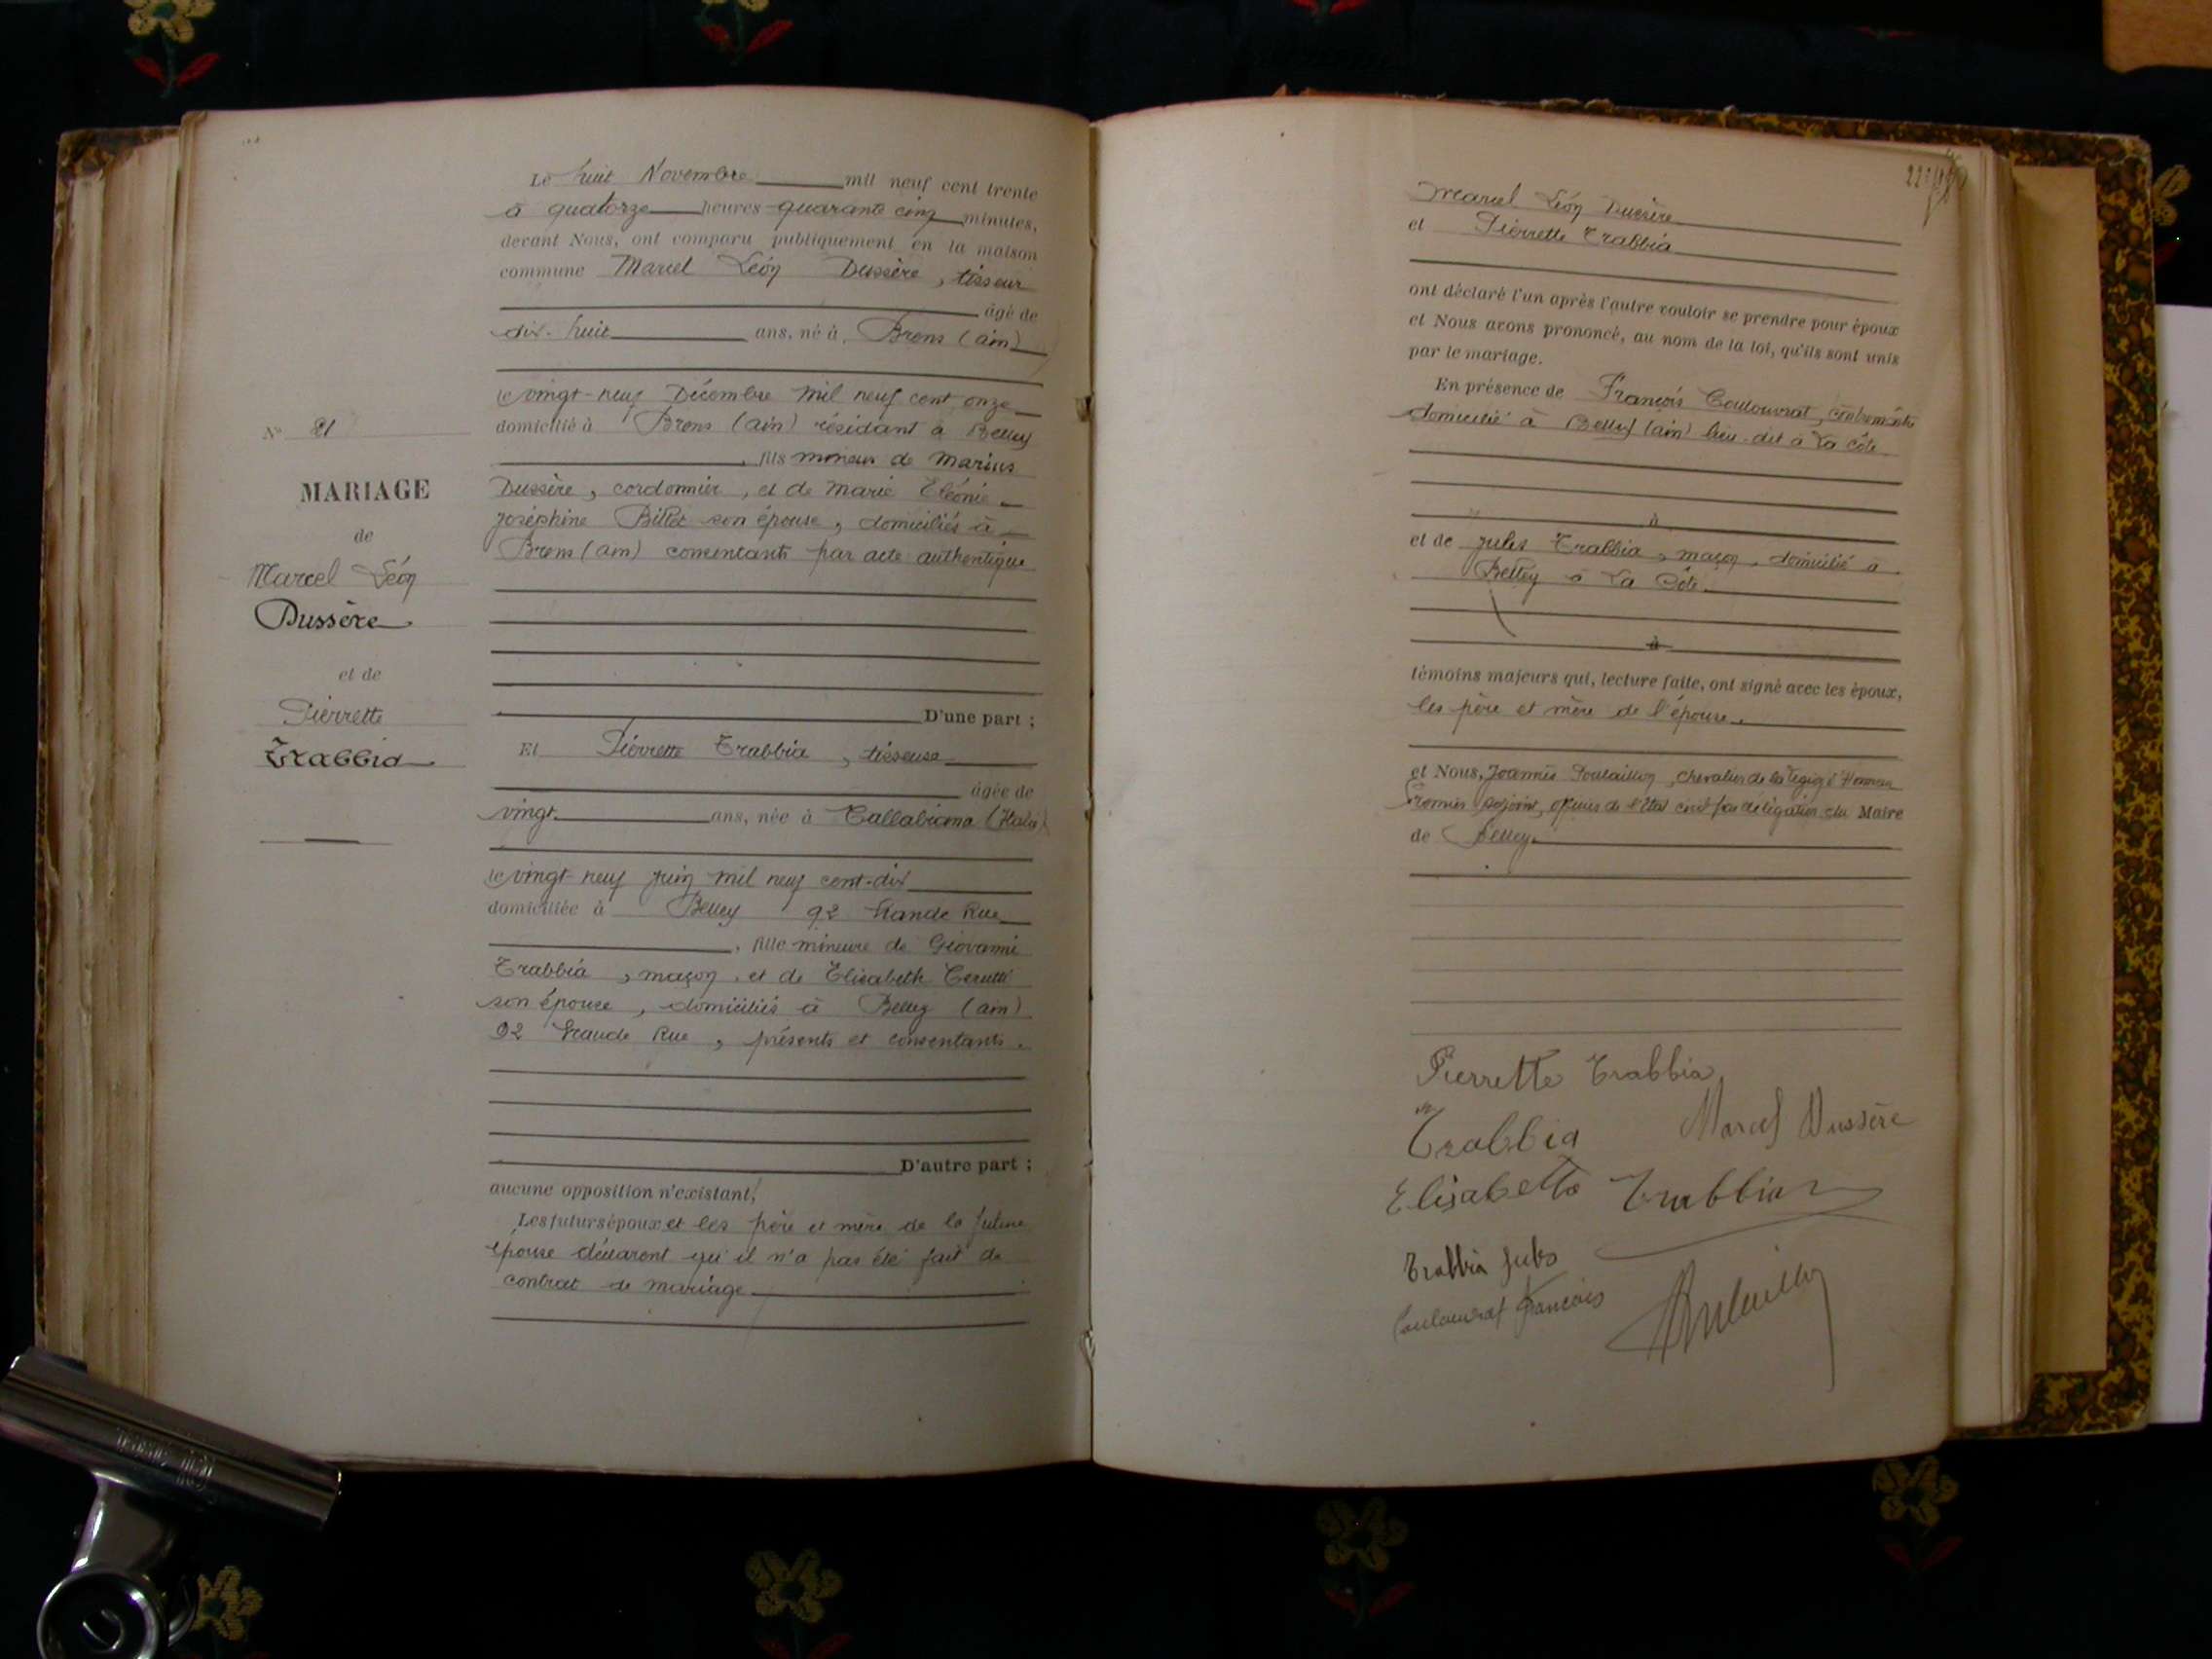 Le huit Novembre mil neuf cent trente
à quatorze heures quarante cinq minutes,
devant Nous, ont comparu publiquement en la maison
commune Marcel Léon Dussère, tisseur
âgé de
dix-huit ans, né à Brens (ain)
le vingt-neuf Décembre mil neuf cent onze
domicilié à Brens (ain) résidant à Belley
, fils mineur de Marius
Dussère, cordonnier, et de Marie Eléonie
Joséphine Billet son épouse, domiciliés à
Brens (ain) consentants par acte authentique
D'une part ;
N° 21
MARIAGE
de
Marcel Léon
Dussère
et de
Pierrette
Trabbia
Et Pierrette Trabbia, tisseuse
âgée de
vingt ans, née à Callabiana (Italie)
le vingt-neuf juin mil neuf cent-dix
domiciliée à Belley 92 Grande Rue
, fille mineure de Giovanni
Trabbia, maçon, et de Elisabeth Cerutti
son épouse, domiciliés à Belley (ain)
92 Grande Rue, présents et consentants.
D'autre part ;
aucune opposition n'existant,
Les futurs époux et les père et mère de la future
épouse déclarent qu'il n'a pas été fait de
contrat de mariage
Marcel Léon Dussère
et Pierrette Trabbia
ont déclaré l'un après l'autre vouloir se prendre pour époux
et Nous avons prononcé, au nom de la loi, qu'ils sont unis
par le mariage.
En présence de François Coulouvrat, contremaître
domicilié à Belley (ain) lieu-dit à La Côte
à
et de Jules Trabbia, maçon, domicilié à
Belley à La Côte
à
témoins majeurs qui, lecture faite, ont signé avec les époux,
les père et mère de l'épouse.
et Nous, Joannès Poulaillon, chevalier de la Légion d'Honneur
Premier adjoint, officier de l'Etat civil par délégation du Maire
de Belley.
Pierrette Trabbia
Trabbia Marcel Dussère
Elisabetta Trabbia
Trabbia Jules
Coulouvrat François